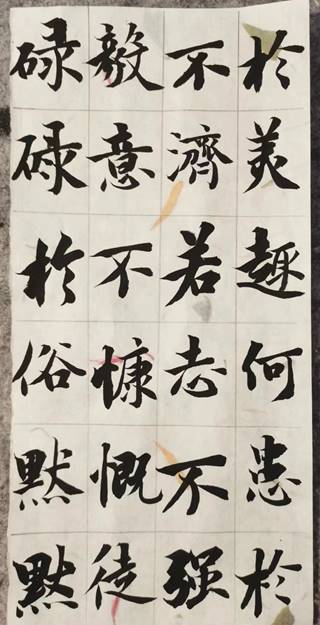 於美趣何患於
不濟若志不强
毅意不慷慨徒
碌碌於俗默默